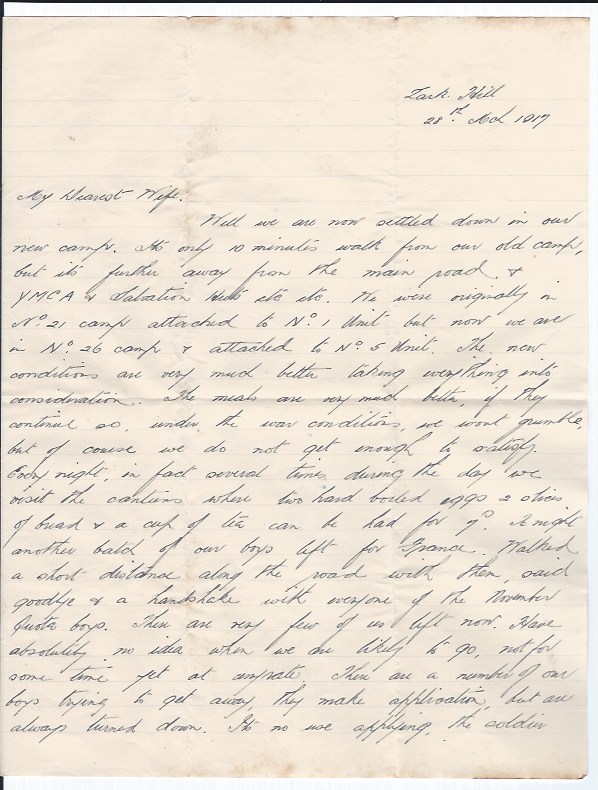 Lark Hill
28th Mch 1917
My Dearest Wife.
Well we are now settled down in our
new camp. Its only 10 minutes walk from our old camp,
but its further away from the main road &
YMCA & Salvation Huts etc etc. We were originally in
No. 21 camp attached to No. 1 Unit but now we are
in No. 26 camp & attached to No. 5 Unit. The new
conditions are very much better taking everything into
consideration. The meals are very much better, if they
continue so, under the war conditions, we wont grumble,
but of course we do not get enough to satisfy.
Every night, in fact several times during the day we
visit the canteens where two hard boiled eggs 2 slices
of bread & a cup of tea can be had for 7d. Tonight
another batch of our boys left for France. Walked
a short distance along the road with them, said
goodbye & a handshake with everyone of the November
Quota boys. There are very few of us left now. Have
absolutely no idea when we are likely to go, not for
some time yet at anyrate. There are a number of our
boys trying to get away, they make application, but are
always turned down. Its no use applying, the soldier